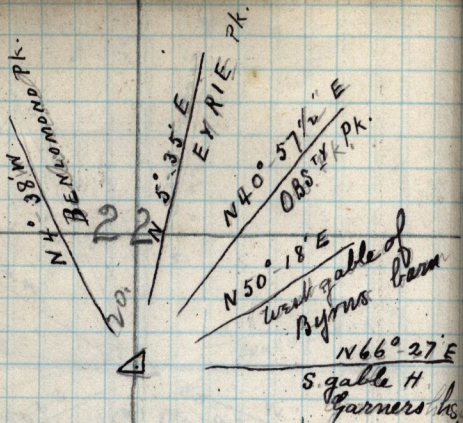 N 4° - 38' W
BENLOMOND PK.
N 5° - 35' E
EYRIE PK.
N 40° - 57 1/2' E
OBSTY PK.
N 50° - 18' E
West gable of
Byrns barn
N 66° - 27' E
S. gable H
Garners hs.
22
20.